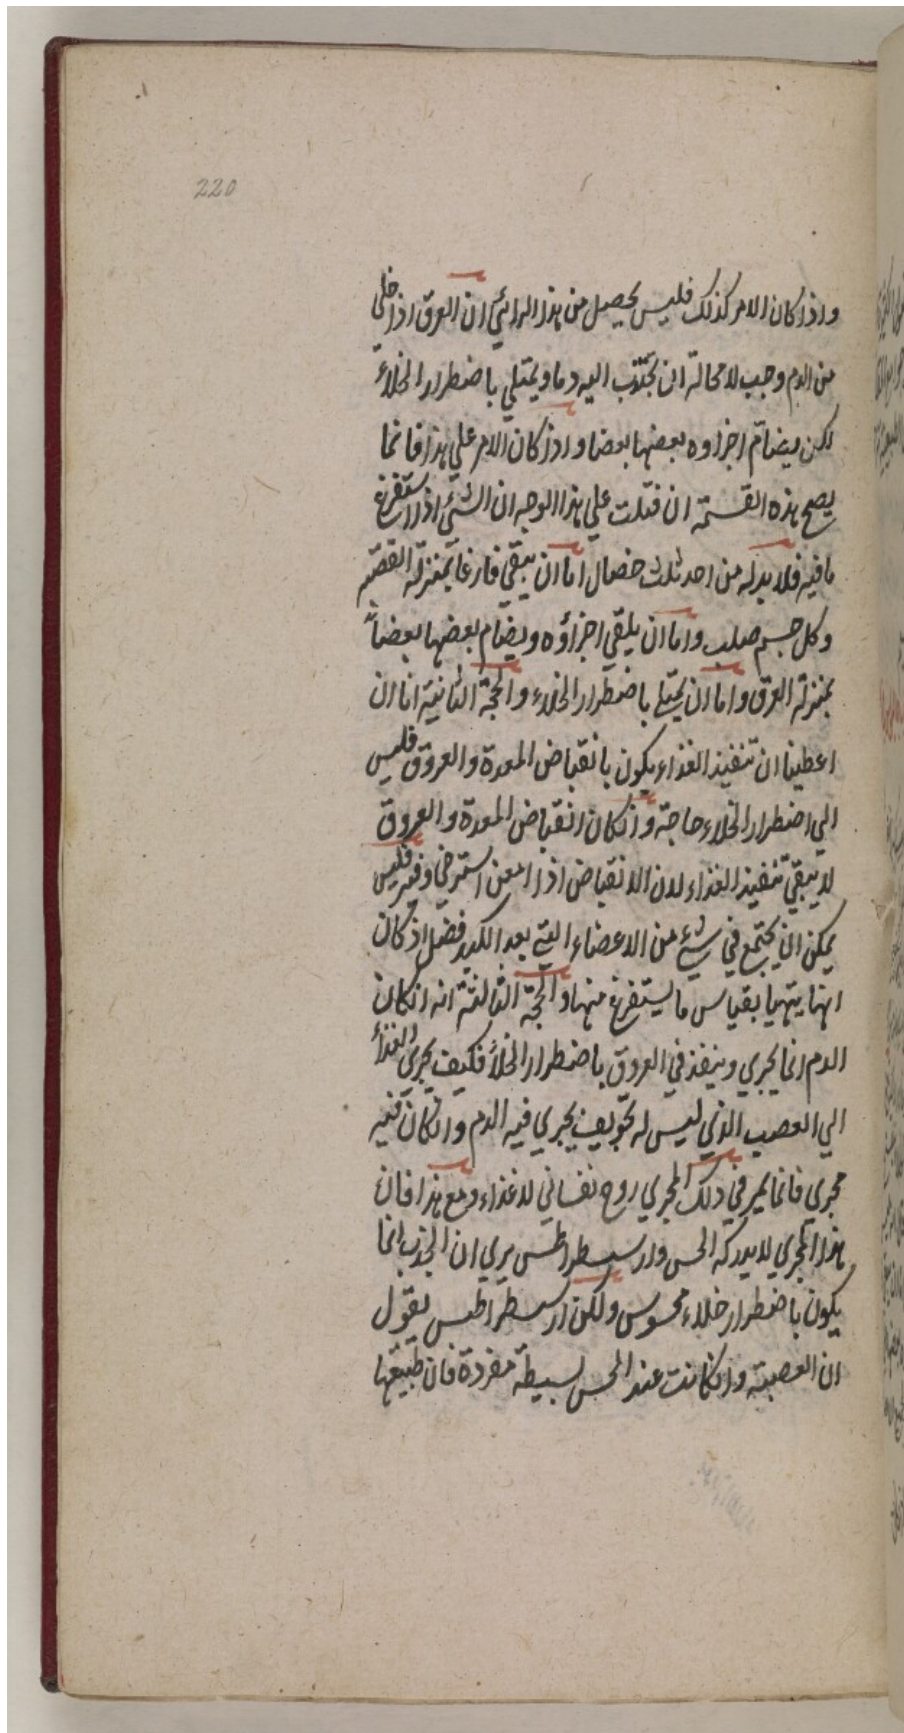 220
واذا كان الامر كذلك فليس يحصل من هذا الرائي ان العرق اذا خلي
من الدم وجب لا محالة ان يجتذب اليه دما ويمتلي باضطرار الخلاء
لكن يضام اجزاوه بعضها بعضا واذ كان الامر علي هذا فانما
يصح هذه القسمة ان قيلت علي هذا الوجه ان الشئ اذا استفرغ
ما فيه فلا بد له من احد ثلث خصال اما ان يبقي فارغا بمنزلة القصبة
وكل جسم صلب واما ان يلقي اجزاؤه ويضام بعضها بعضاً
بمنزلة العرق واما ان يمتلي باضطرار الخلاء والحجة الثانية انا ان
اعطينا ان تنفيذ الغذاء يكون بانقباض المعدة والعروق فليس
الي اضطرار الخلاء حاجة وان كان انقباض المعدة والعروق
لا يبقي تنفيذ الغذاء لان الانقباض اذا امعن استرخي وفتر فليس
يمكن ان يجتمع في شئ من الاعضاء التي بعد الكبد فضل اذ كان
انما يتهيا بقياس ما يستفرغ منها والحجة الثالثة انه ان كان
الدم انما يجري وينفذ في العروق باضطرار الخلأ فكيف يجري الغذأ
الي العصب الذي ليس له تجويف يجري فيه الدم وان كان فيه
مجري فانما يمر في ذلك المجري روح نفساني لا غذاء ومع هذا فان
هذا المجري لا يدركه الحس وارسطراطس يري ان الجذب انما
يكون باضطرار خلاء محسوس ولكن ارسطراطيس يقول
ان العصبة وان كانت عند الحس بسيطة مفردة فان طبيعتها